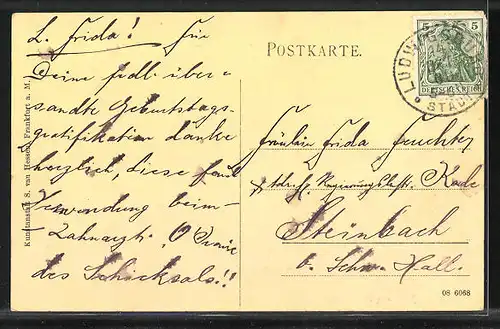 L. Frida! Für
Deine frdl. über-
sandte Geburtstags-
gratifikation danke
herzlich, diese fand
Verwendung beim
Zahnarzt. O Ironie
des Schicksals!!
POSTKARTE.
Fräulein Frida Feuchter
Steinbach
b. Schw. Hall.
Kunstanstalt S. van Hessen, Frankfurt a. M.
5 5
DEUTSCHES REICH
LUDWIGSBURG
STADT
08 6068